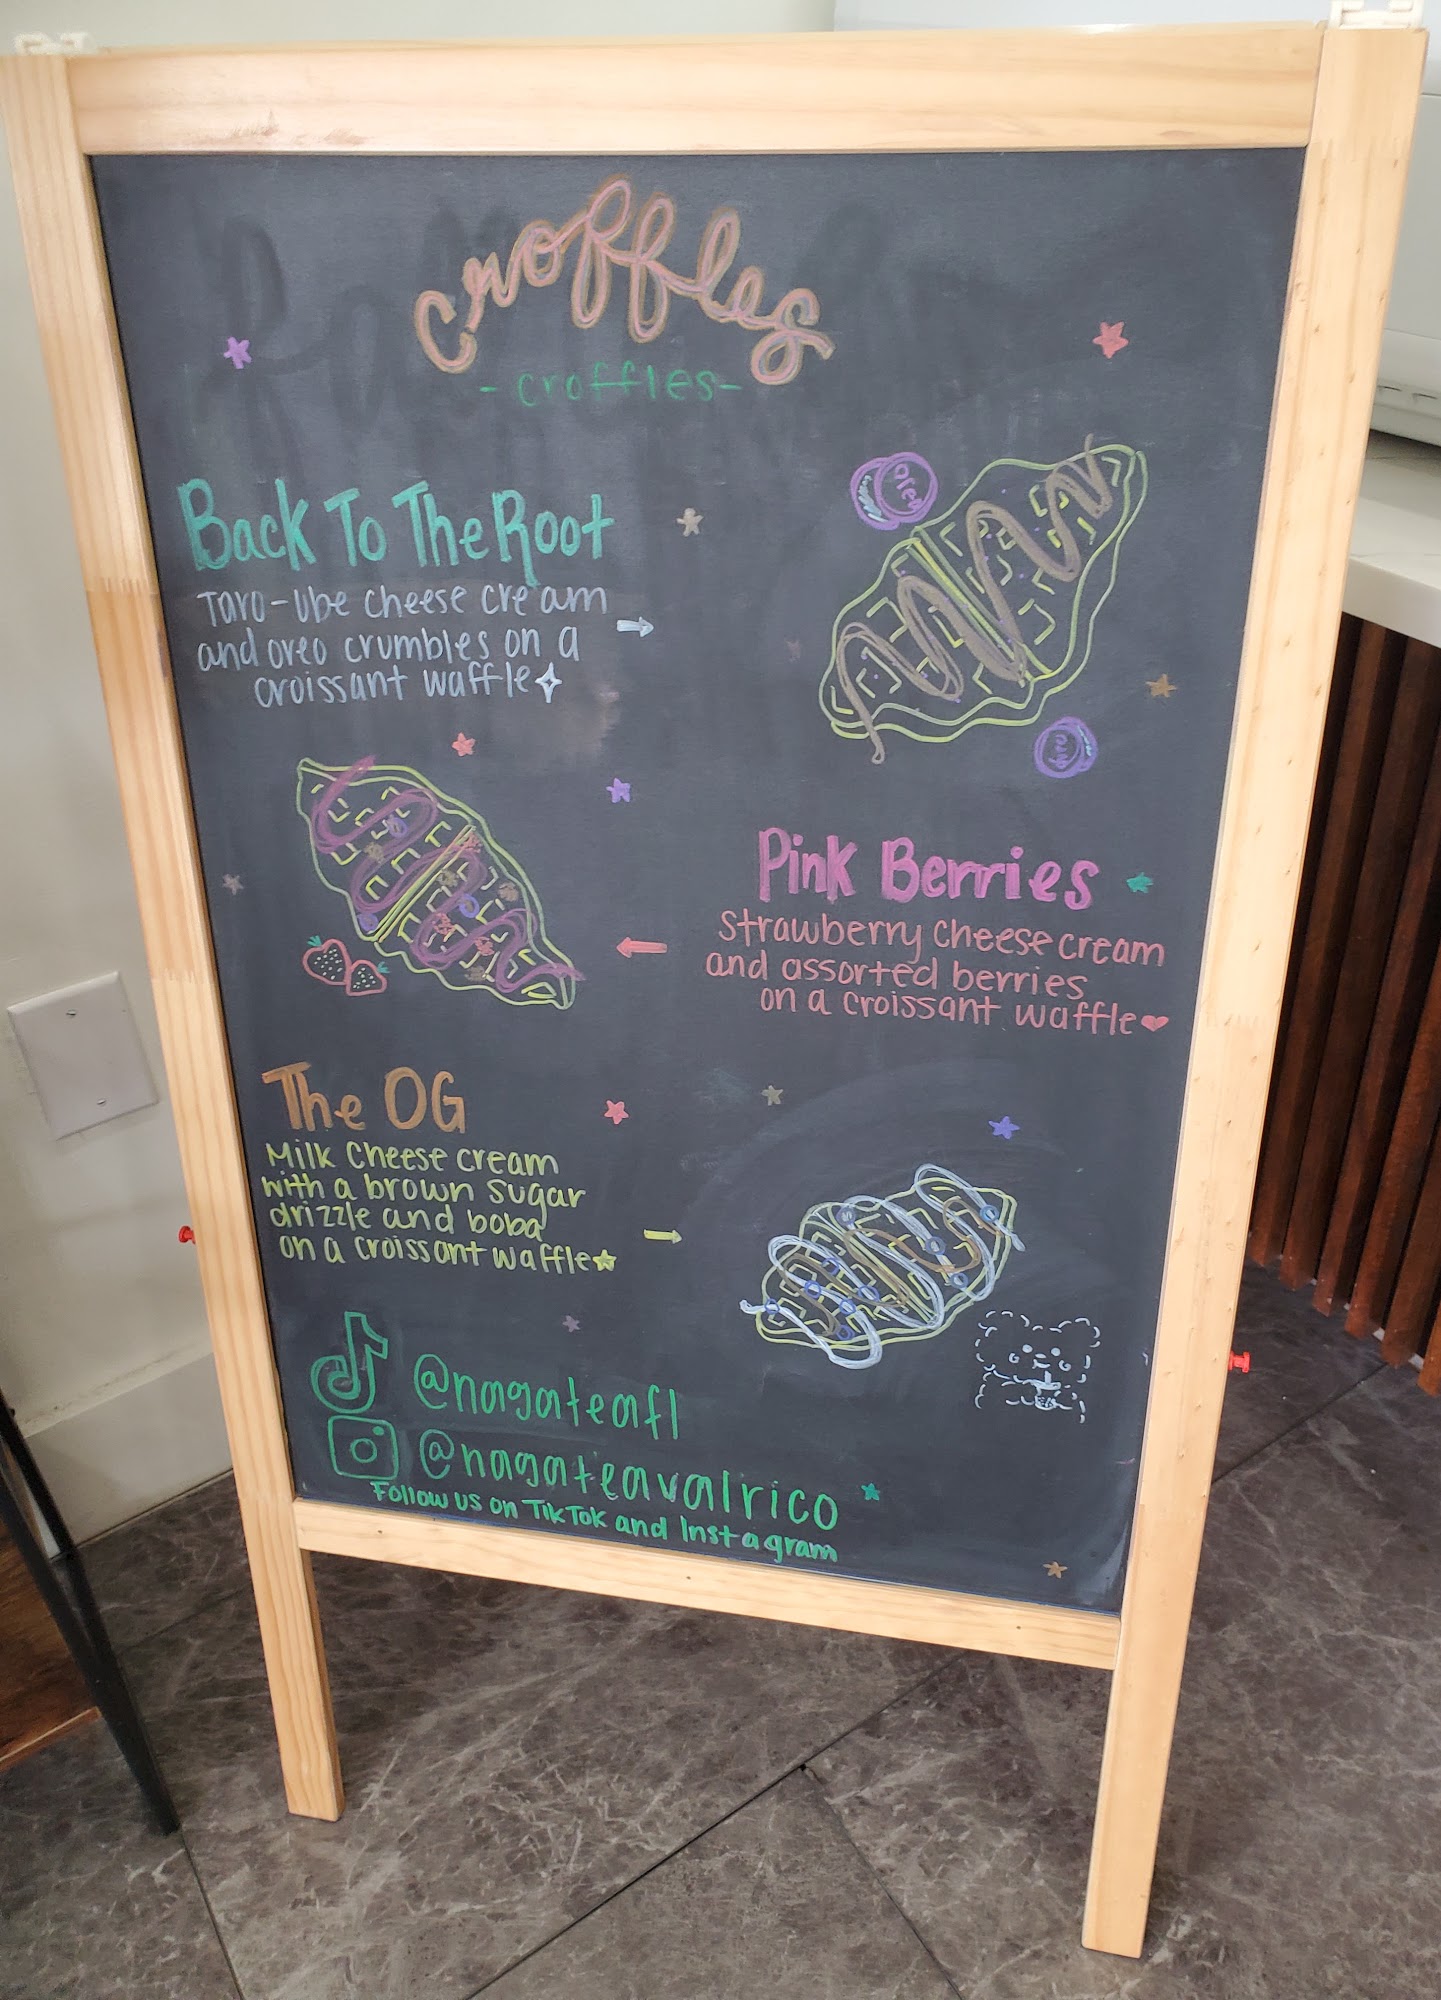 croffles
-croffles-
Back To The Root
Taro-Ube cheese cream
and oreo crumbles on a
croissant waffle
oreo
oreo
Pink Berries
Strawberry cheese cream
and assorted berries
on a croissant waffle
The OG
Milk Cheese cream
with a brown sugar
drizzle and boba
on a croissant waffle
@nagateafl
@nagateavalrico
Follow us on TikTok and Instagram